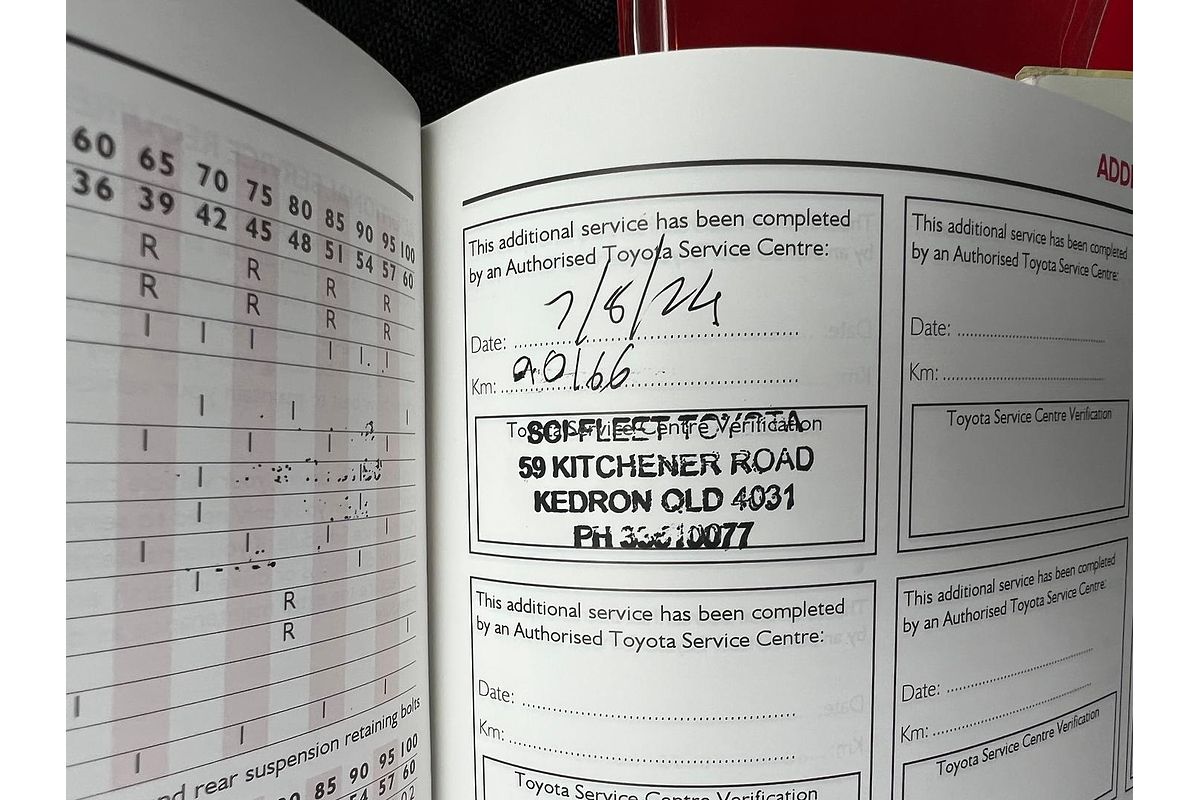 60 65 70 75 80 85 90 95 100
36 39 42 45 48 51 54 57 60
R R R R
R R R R
I I I I I I
I I I
I I I I
I
I I
I I I
I
R
R I
I I
I I
I
nd rear suspension retaining bolts
90 85 90 95 100
54 57 60
02
ADDI
This additional service has been completed
by an Authorised Toyota Service Centre:
Date: 7/8/24
Km: 90166
Toyota Service Centre Verification
SCI-FLEET TOYOTA
59 KITCHENER ROAD
KEDRON QLD 4031
PH 33610077
This additional service has been completed
by an Authorised Toyota Service Centre:
Date:
Km:
Toyota Service Centre Verification
This additional service has been completed
by an Authorised Toyota Service Centre:
Date:
Km:
Toyota Service Centre Verification
This additional service has been completed
by an Authorised Toyota Service Centre:
Date:
Km:
Toyota Service Centre Verification